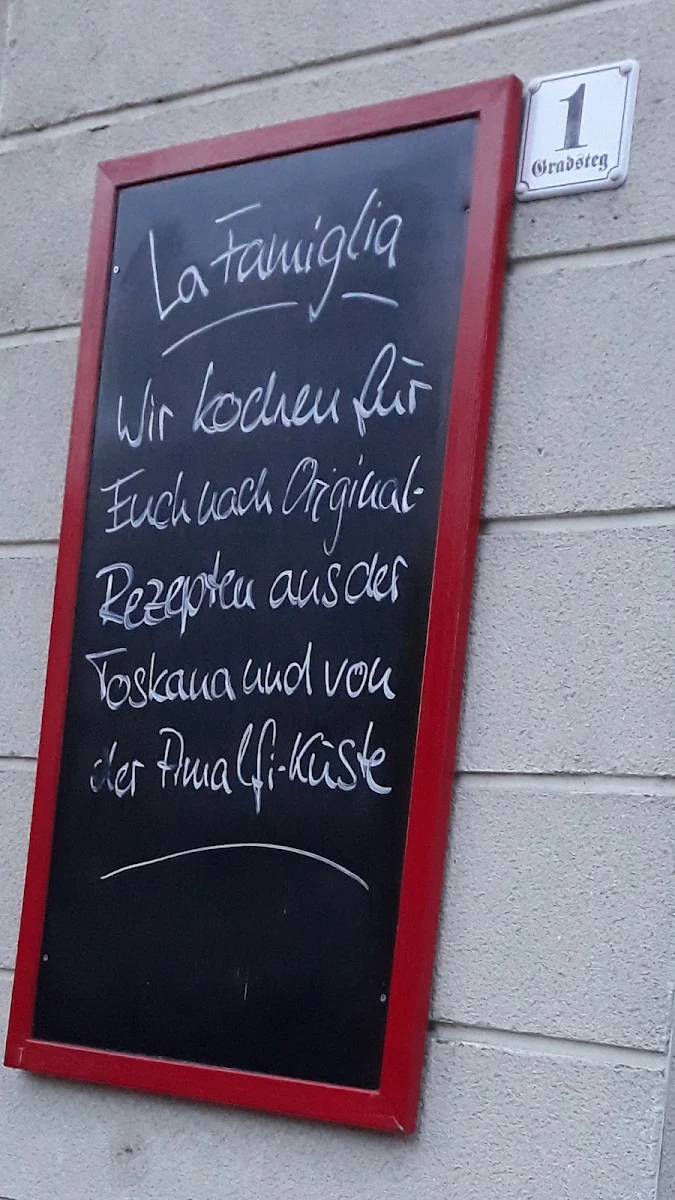 1
Gradsteg
La Famiglia
Wir kochen für
Euch nach Original-
Rezepten aus der
Toskana und von
der Amalfi-Küste